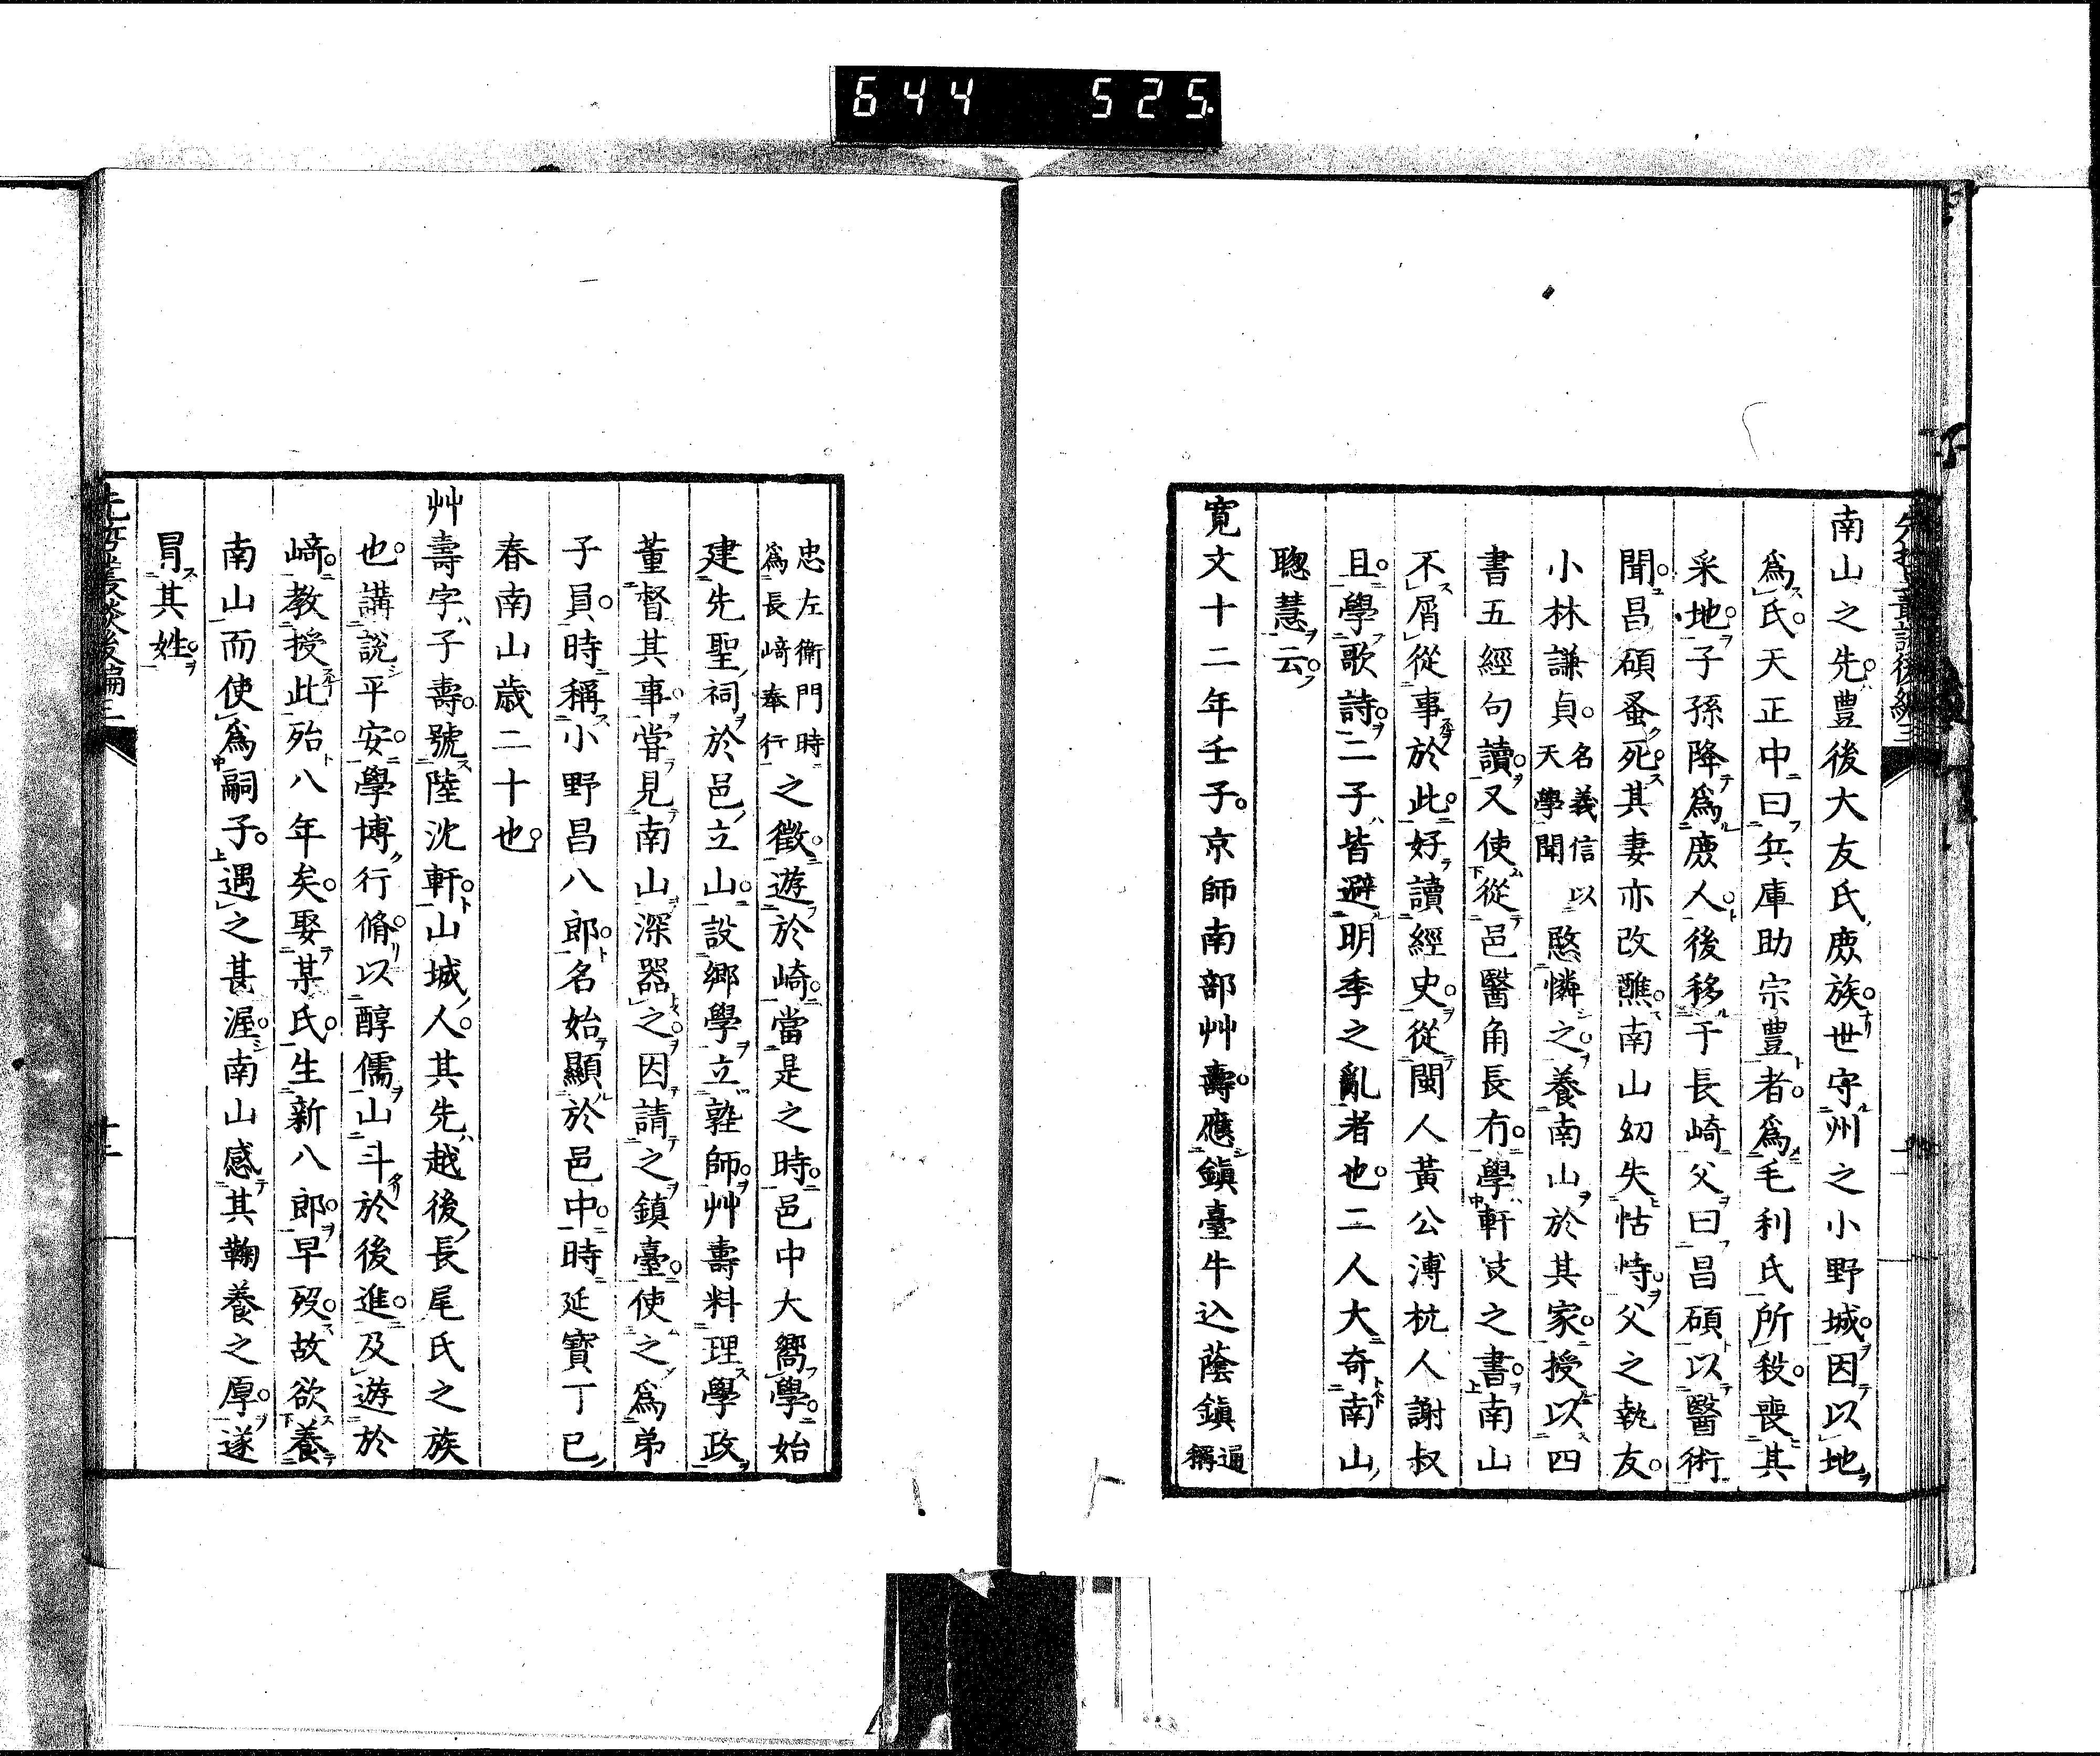 644 525
南山之先豊後大友氏庶族世守州之小野城因以地
爲氏天正中曰兵庫助宗豊者爲毛利氏所殺喪其
采地子孫降爲庶人後移于長崎父曰昌碩以醫術
聞昌碩蚤死其妻亦改醮南山幼失怙恃父之執友
小林謙貞名義信以天學聞愍憐之養南山於其家授以四
書五經句讀又使從邑醫角長有學軒岐之書南山
不屑從事於此好讀經史從閩人黃公溥杭人謝叔
且學歌詩二子皆避明季之亂者也二人大奇南山
聰慧云
寛文十二年壬子京師南部艸壽應鎭臺牛込蔭鎭通稱
忠左衛門時爲長﨑奉行之徵遊於崎當是之時邑中大嚮學始
建先聖祠於邑立山設鄉學立塾師艸壽料理學政
董督其事嘗見南山深器之因請之鎮臺使之爲弟
子員時稱小野昌八郎名始顯於邑中時延寶丁巳
春南山歳二十也
艸壽字子壽號陸沈軒山城人其先越後長尾氏之族
也講說平安學博行脩以醇儒山斗於後進及遊於
﨑教授此殆八年矣娶某氏生新八郎早歿故欲養
南山而使爲嗣子遇之甚渥南山感其鞠養之厚遂
冒其姓